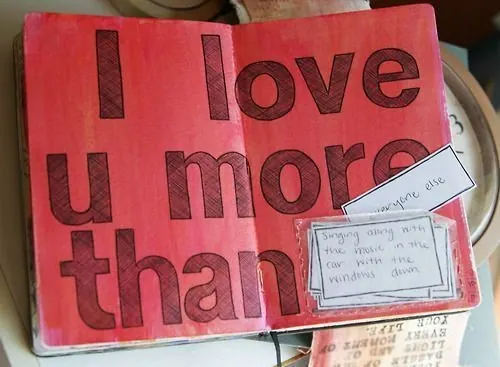 I love
u more
than
everyone else
Singing along with
the music in the
car with the
windows down
YOUR LIFE.
EVERY MOMENT OF
LIGHT AND OF